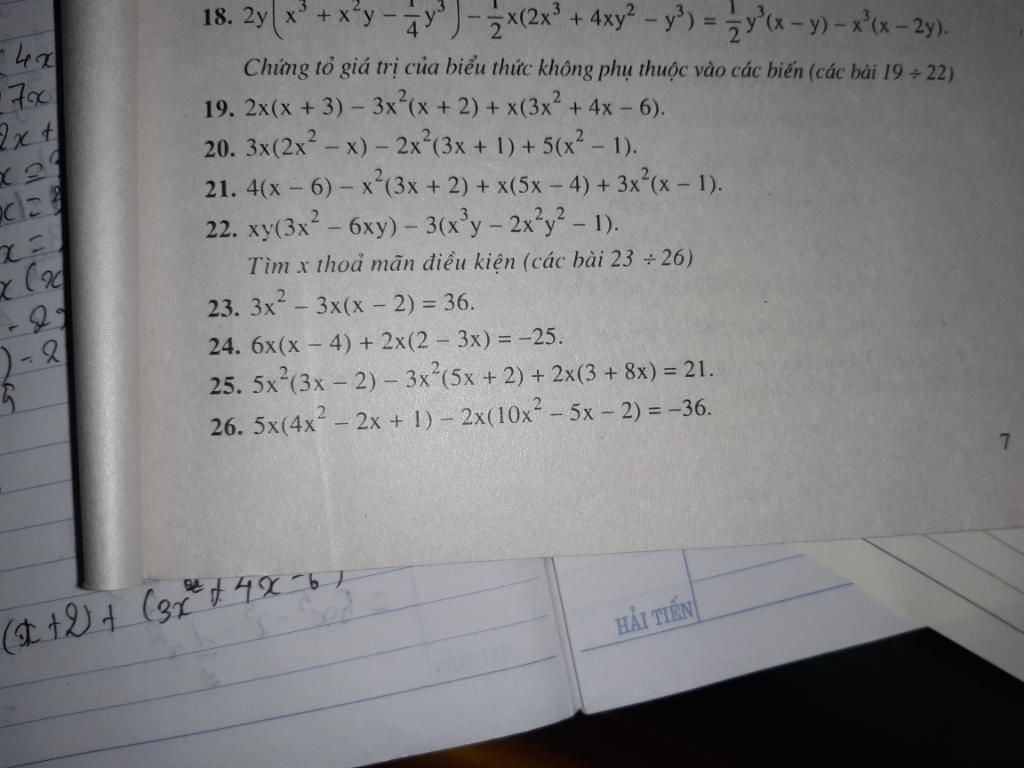 18. 2y(x³ + x²y − 1/4 y³) − 1/2 x(2x³ + 4xy² − y³) = 1/2 y³(x − y) − x³(x − 2y).
Chứng tỏ giá trị của biểu thức không phụ thuộc vào các biến (các bài 19 ÷ 22)
19. 2x(x + 3) − 3x²(x + 2) + x(3x² + 4x − 6).
20. 3x(2x² − x) − 2x²(3x + 1) + 5(x² − 1).
21. 4(x − 6) − x²(3x + 2) + x(5x − 4) + 3x²(x − 1).
22. xy(3x² − 6xy) − 3(x³y − 2x²y² − 1).
Tìm x thoả mãn điều kiện (các bài 23 ÷ 26)
23. 3x² − 3x(x − 2) = 36.
24. 6x(x − 4) + 2x(2 − 3x) = −25.
25. 5x²(3x − 2) − 3x²(5x + 2) + 2x(3 + 8x) = 21.
26. 5x(4x² − 2x + 1) − 2x(10x² − 5x − 2) = −36.
7
4x
7x
2x +
x =
x =
x (x
5
(x + 2) + (3x² + 4x − 6)
HẢI TIẾN